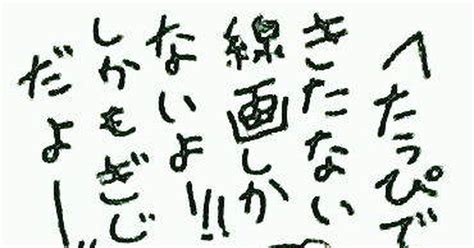 へたっぴで
きたない
線画しか
ないよ!!
しかもぎじ
だよー